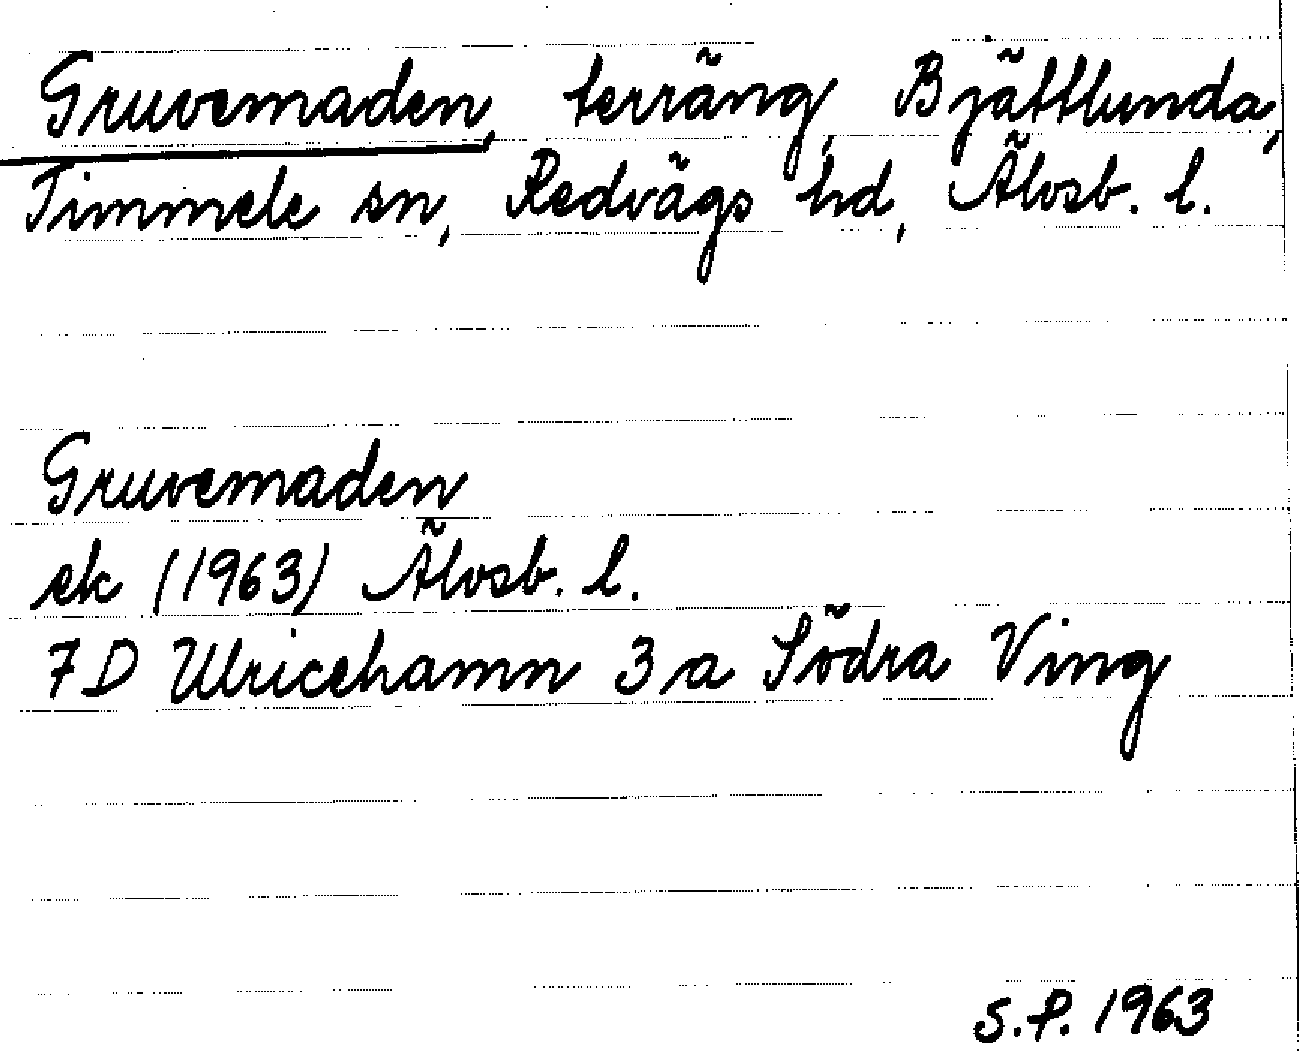 Gruvemaden, terräng, Bjättlunda,
Timmele sn, Redvägs hd, Älvsb. l.
Gruvemaden
ek (1963) Älvsb. l.
7 D Ulricehamn 3 a Södra Ving
S.P. 1963